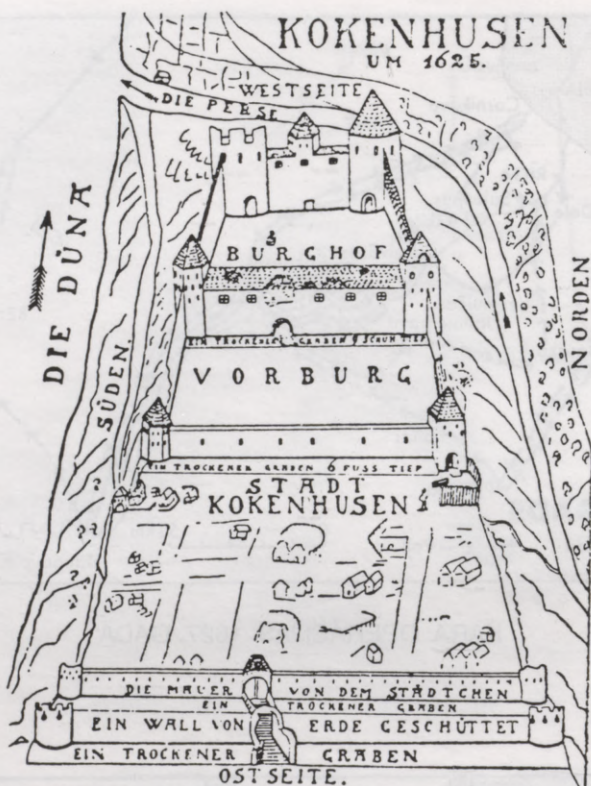 KOKENHUSEN
UM 1625.
WESTSEITE
DIE PERSE
DIE DÜNA
SÜDEN.
NORDEN
BURGHOF
EIN TROCKENER GRABEN 9 SCHUH TIEF
VORBURG
EIN TROCKENER GRABEN 6 FUSS TIEF
STADT
KOKENHUSEN
DIE MAUER VON DEM STÄDTCHEN
EIN TROCKENER GRABEN
EIN WALL VON ERDE GESCHÜTTET
EIN TROCKENER GRABEN
OSTSEITE.